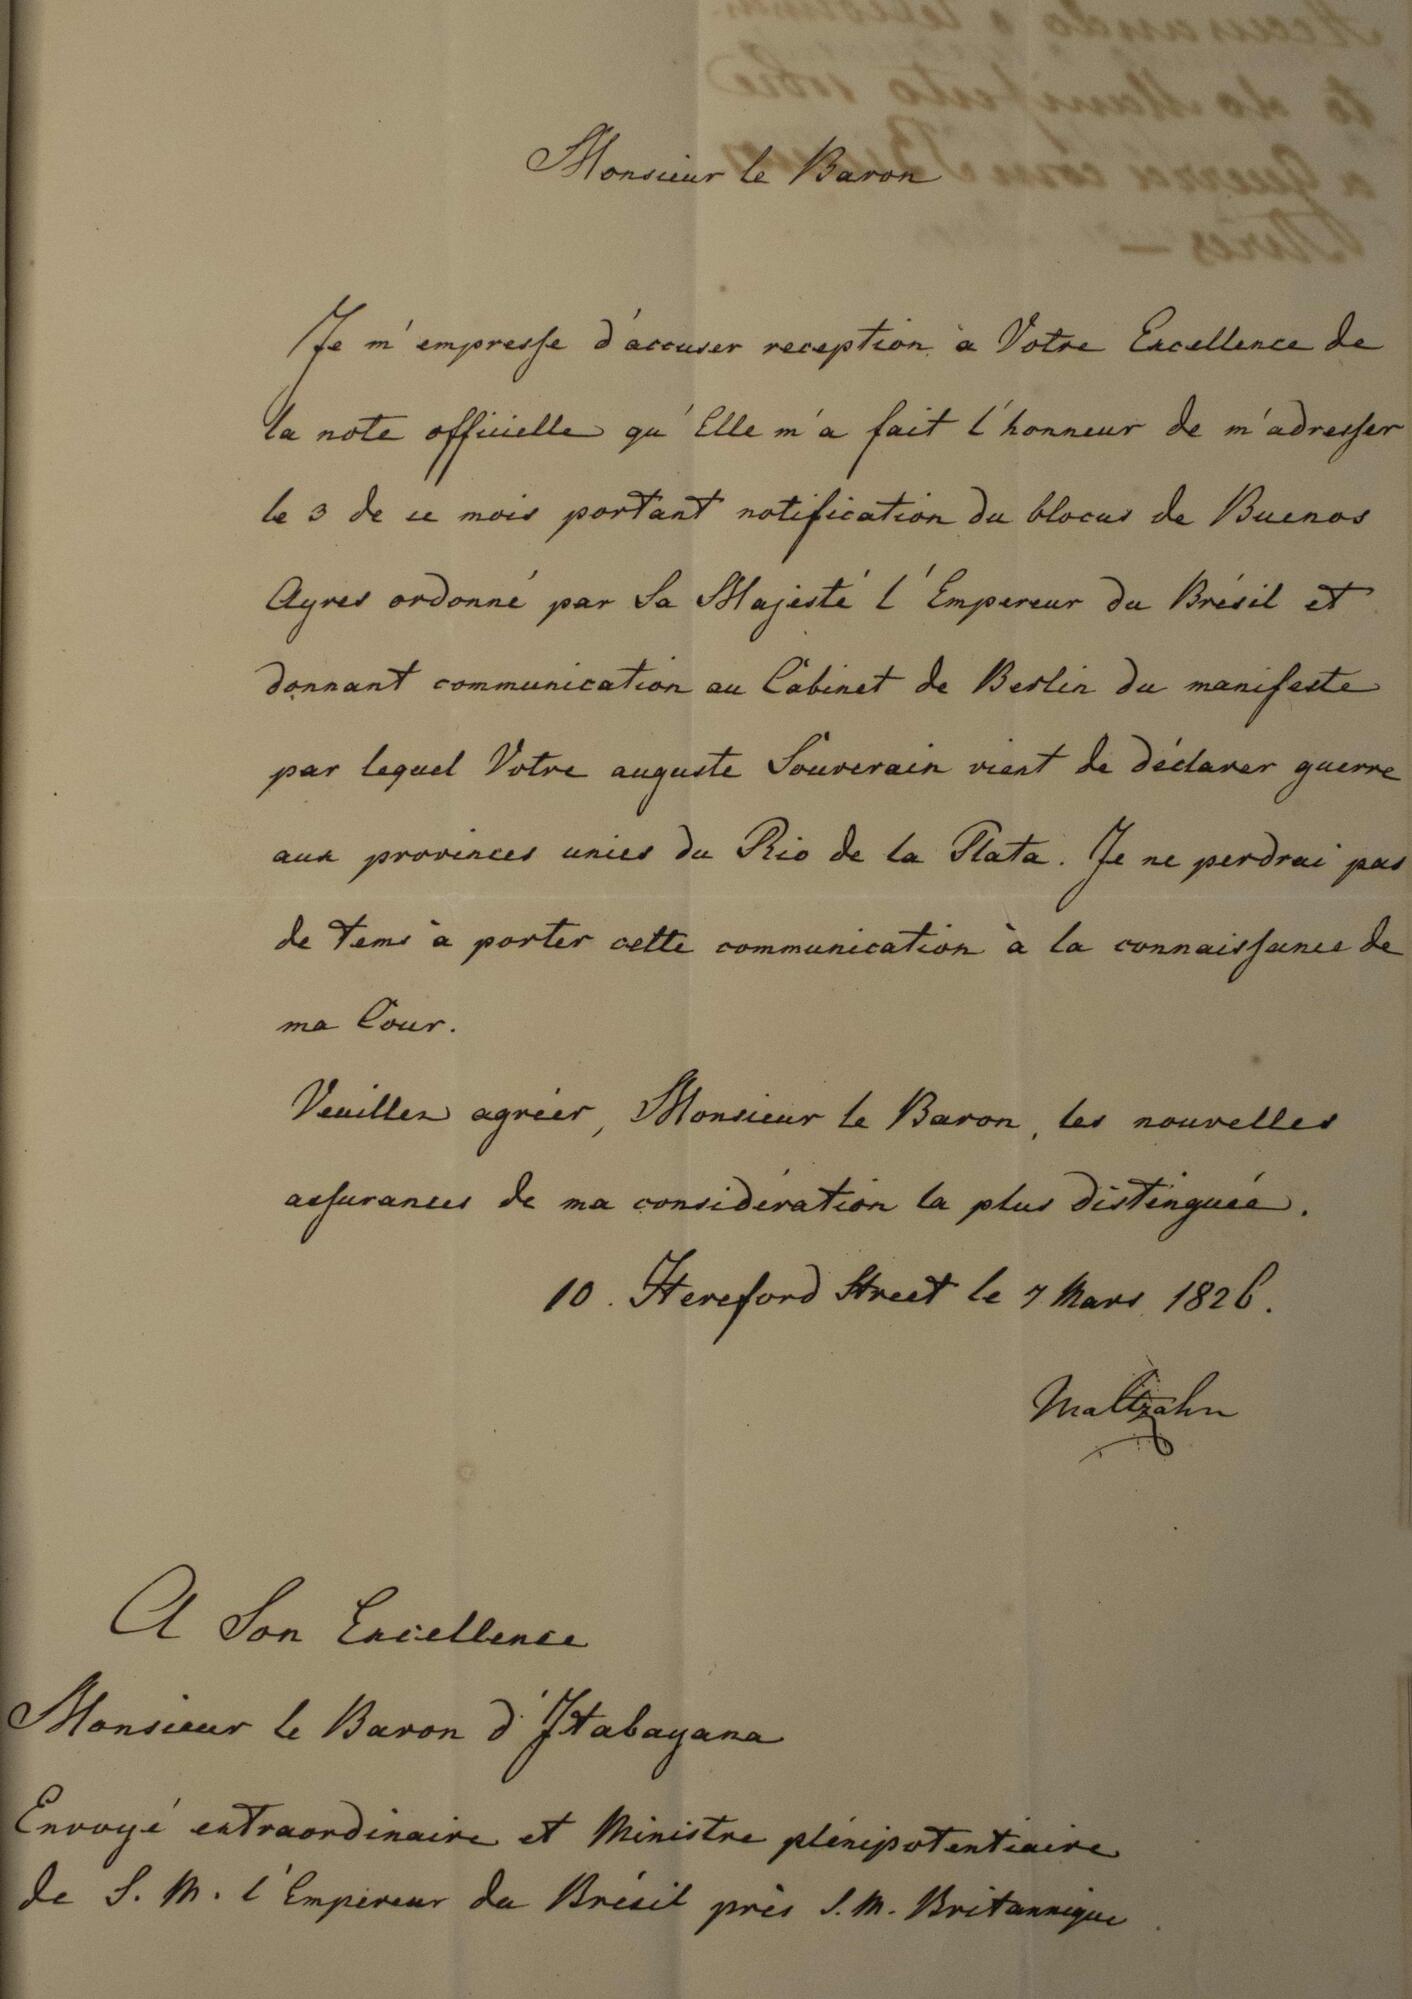 Monsieur le Baron
Je m'empresse d'accuser reception à Votre Excellence de
la note officielle qu'Elle m'a fait l'honneur de m'adresser
le 3 de ce mois portant notification du blocus de Buenos
Ayres ordonné par Sa Majesté l'Empereur du Brésil et
donnant communication au Cabinet de Berlin du manifeste
par lequel Votre auguste Souverain vient de déclarer guerre
aux provinces unies du Rio de la Plata. Je ne perdrai pas
de tems à porter cette communication à la connaissance de
ma Cour.
Veuillez agréer, Monsieur le Baron, les nouvelles
assurances de ma considération la plus distinguée.
10. Hereford Street le 7 Mars 1826.
Maltzahn
A Son Excellence
Monsieur le Baron d'Itabayana
Envoyé extraordinaire et Ministre plénipotentiaire
de S. M. l'Empereur du Brésil près S. M. Britannique